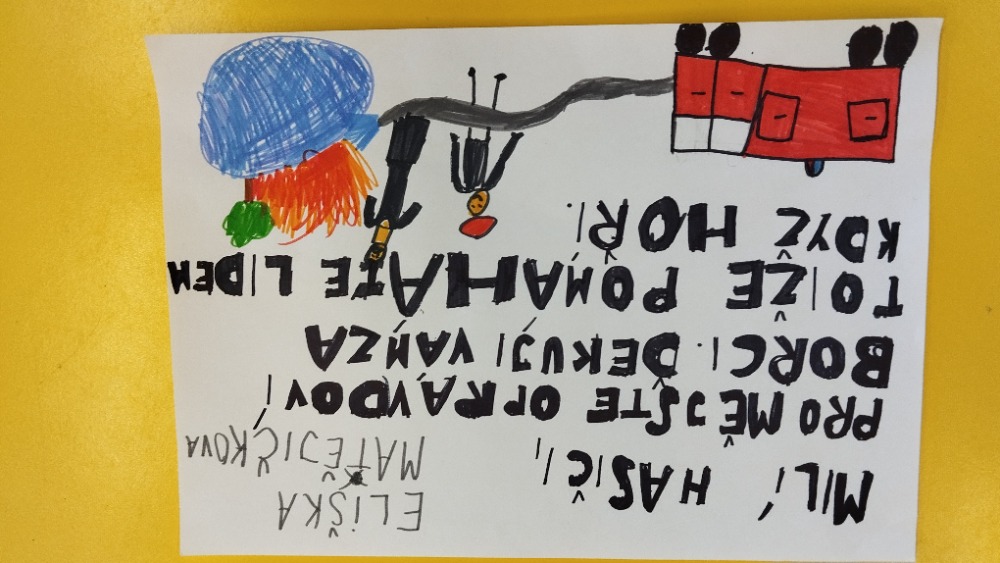 MILÍ HASIČI,
ELIŠKA
MATĚJIČKOVA
PRO MĚ JSTE OPRAVDOVÍ
BORCI. DĚKUJI VÁM ZA
TO, ŽE POMÁHÁTE LIDEM
KDYŽ HOŘÍ.